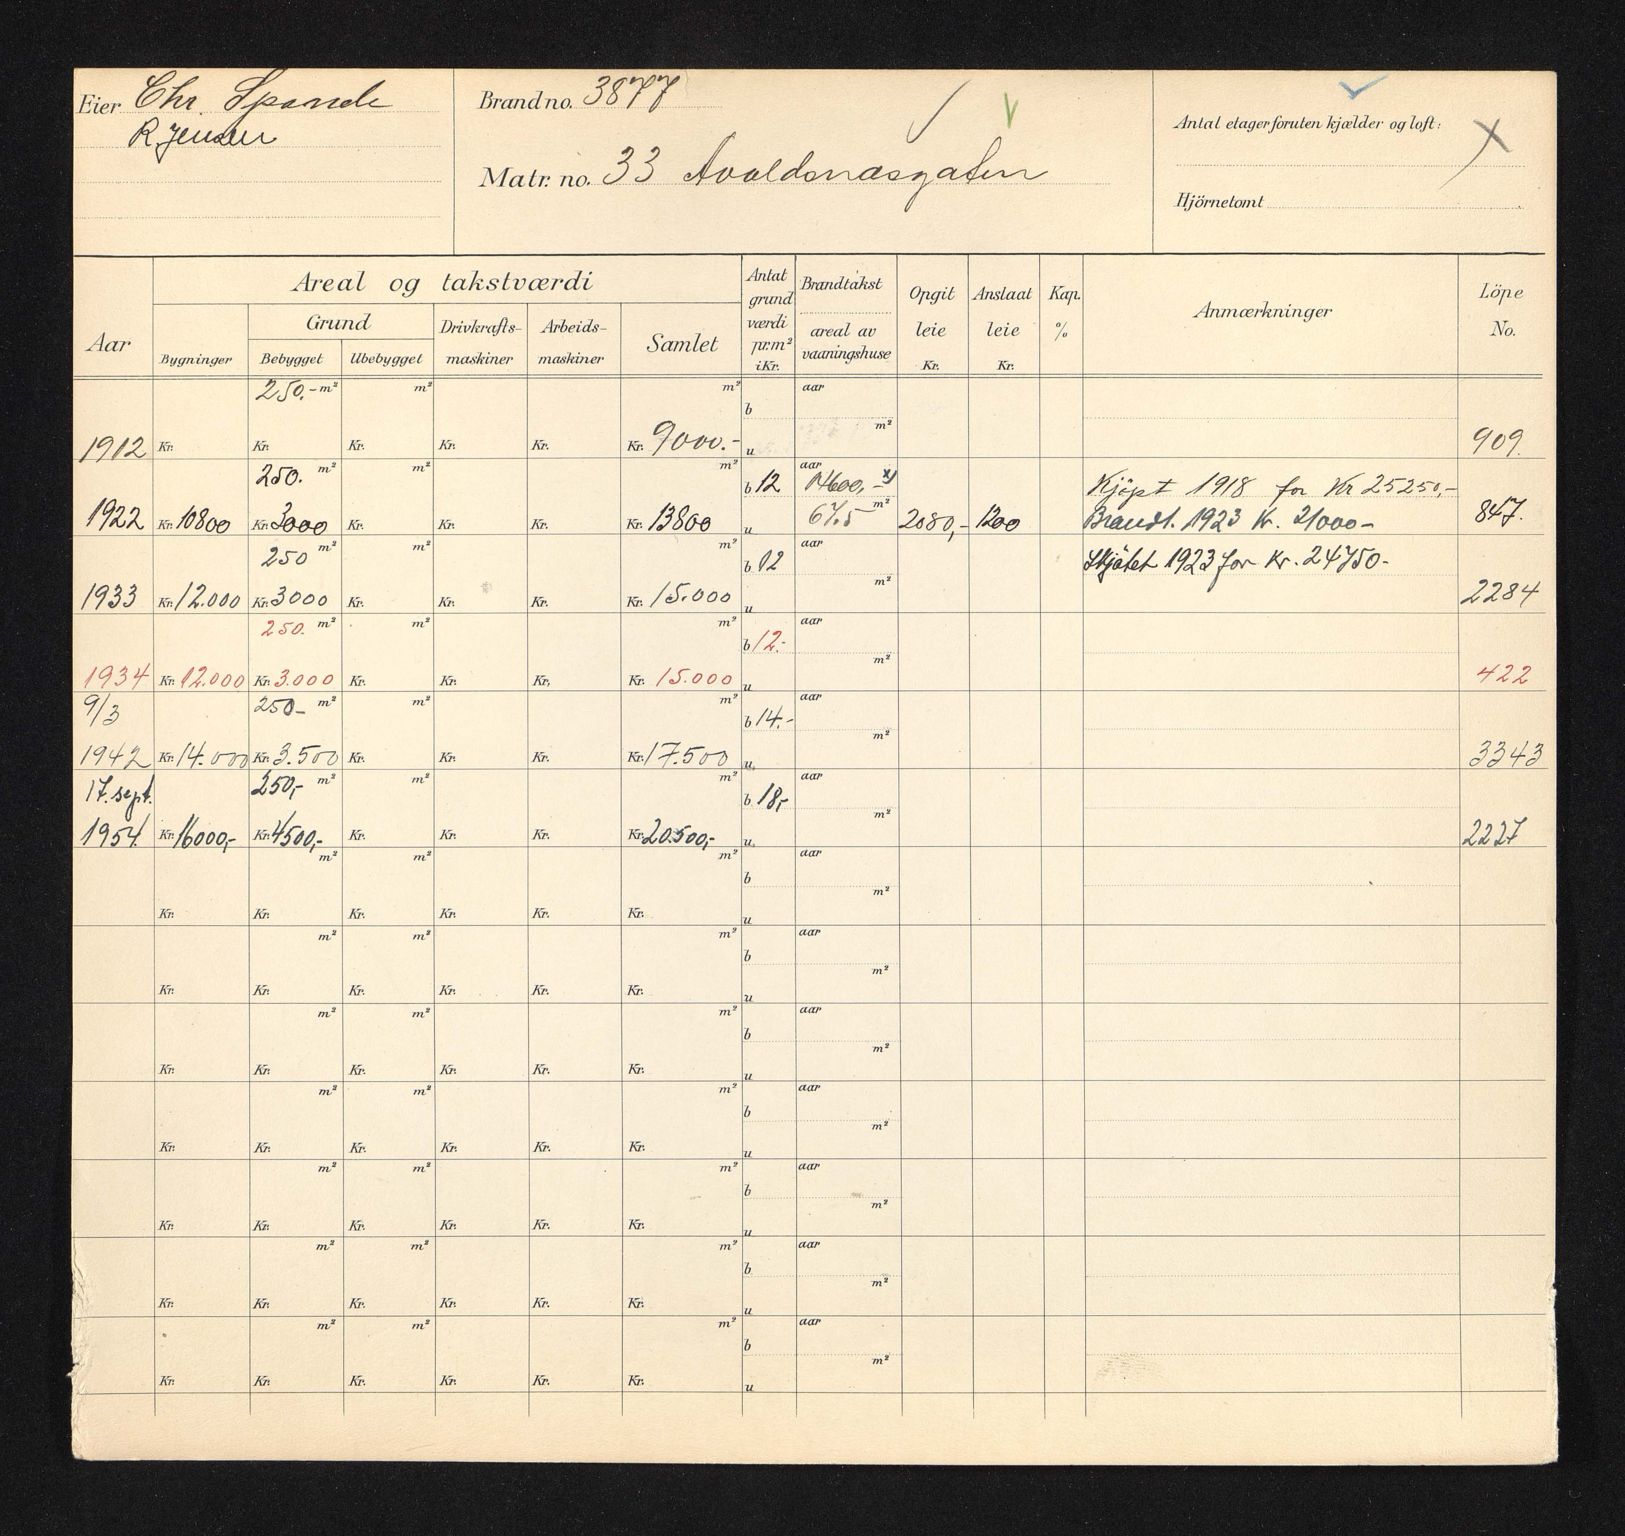 Eier Chr. Spande
R Jensen
Brand no. 3877
Matr. no. 33 Avaldsnæsgaten
Antal etager foruten kjælder og loft:
Hjörnetomt
Aar
Areal og takstværdi
Bygninger
Grund
Bebygget Ubebygget
Drivkrafts-maskiner
Arbeids-maskiner
Samlet
Antat grund værdi pr.m² i Kr.
Brandtakst
areal av vaaningshuse
Opgit leie Kr.
Anslaat leie Kr.
Kap. %
Anmærkninger
Löpe No.
250.- m² m² m² b aar
m²
1912 Kr. Kr. Kr. Kr. Kr. Kr. 9000.- u 909.
250. m² m² m² b 12 aar 14600,- x) Kjöpt 1918 for Kr 25250,-
67.5 m²
1922 Kr. 10800 Kr. 3000 Kr. Kr. Kr. Kr. 13800 u 2080,- 1200 Brandt. 1923 Kr. 21000- 847.
250 m² m² m² b 12 aar Skjötet 1923 for Kr. 24750-
m²
1933 Kr. 12.000 Kr. 3000 Kr. Kr. Kr. Kr. 15.000 u 2284
250. m² m² m² b 12.- aar
m²
1934 Kr. 12.000 Kr. 3.000 Kr. Kr. Kr. Kr. 15.000 u 422
9/3 250- m² m² m² b 14.- aar
m²
1942 Kr. 14.000 Kr. 3.500 Kr. Kr. Kr. Kr. 17.500 u 3343
17. sept. 250,- m² m² m² b 18,- aar
m²
1954. Kr. 16000,- Kr. 4500,- Kr. Kr. Kr. Kr. 20.500,- u 2227
m² m² m² b aar
m²
Kr. Kr. Kr. Kr. Kr. Kr. u
m² m² m² b aar
m²
Kr. Kr. Kr. Kr. Kr. Kr. u
m² m² m² b aar
m²
Kr. Kr. Kr. Kr. Kr. Kr. u
m² m² m² b aar
m²
Kr. Kr. Kr. Kr. Kr. Kr. u
m² m² m² b aar
m²
Kr. Kr. Kr. Kr. Kr. Kr. u
m² m² m² b aar
m²
Kr. Kr. Kr. Kr. Kr. Kr. u
m² m² m² b aar
m²
Kr. Kr. Kr. Kr. Kr. Kr. u